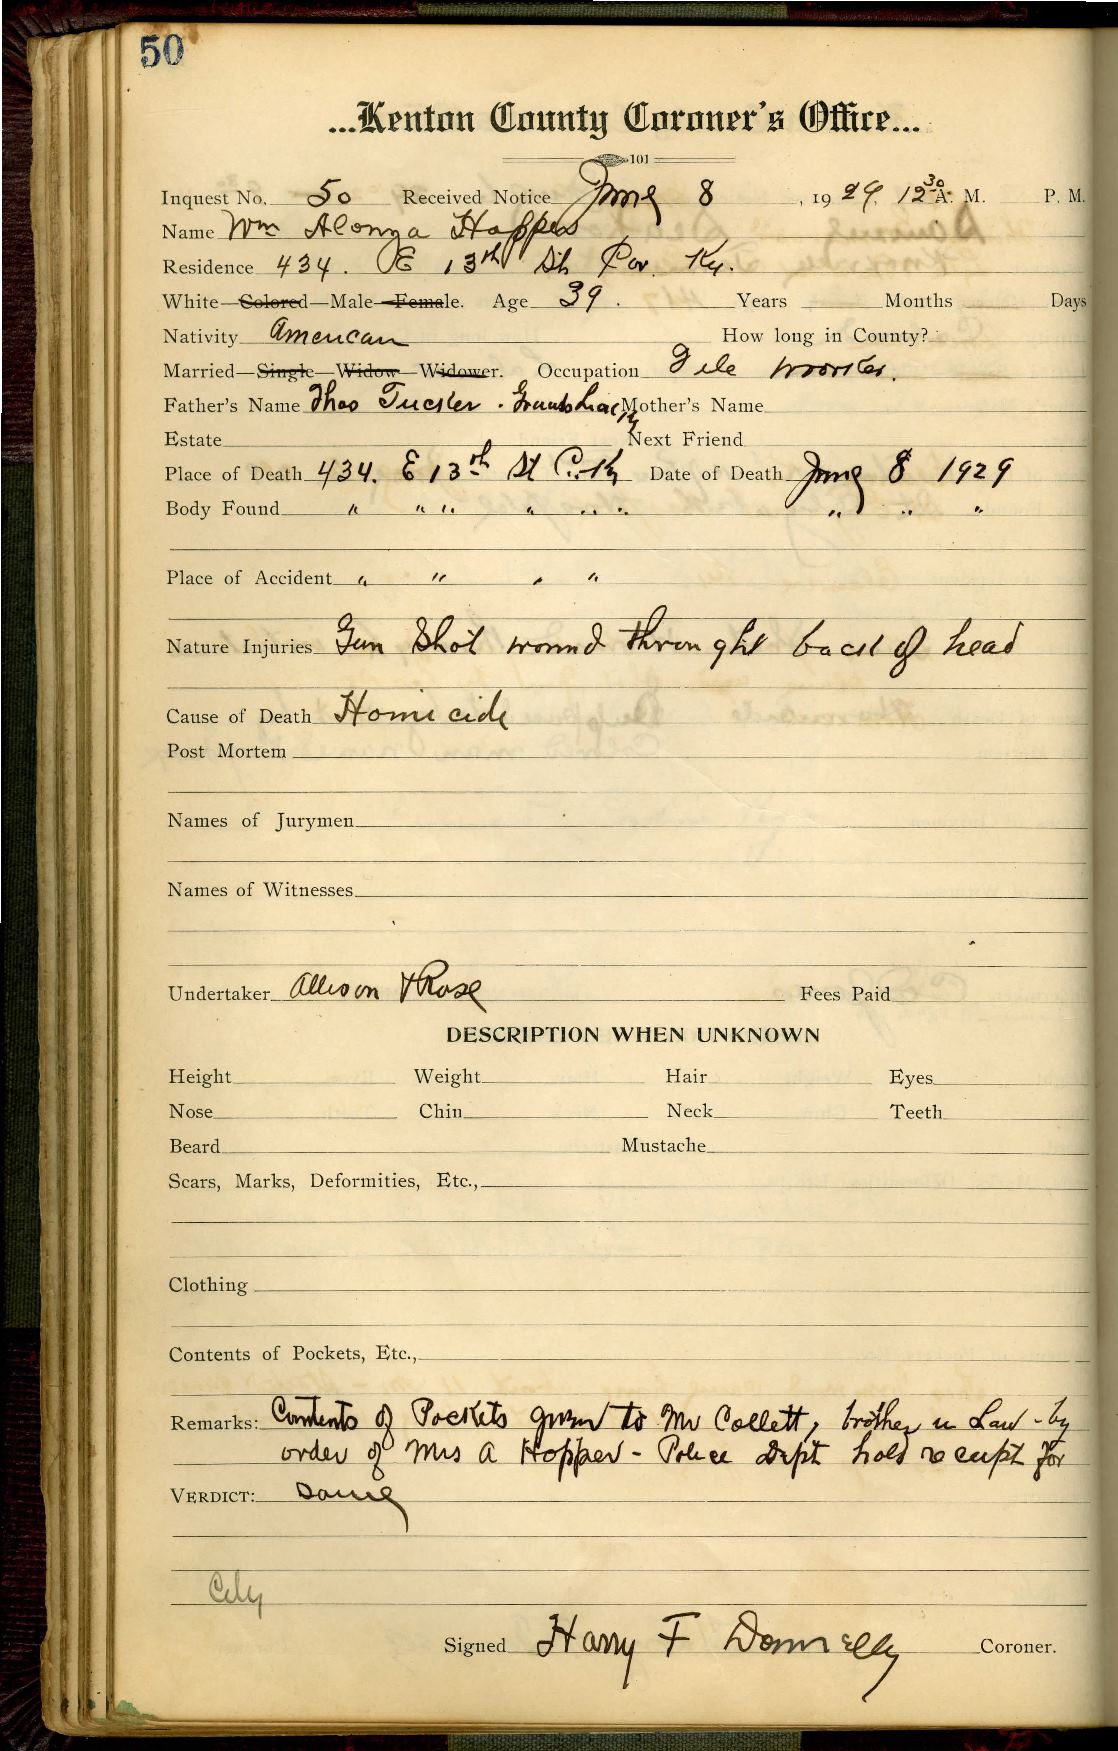 50
...Kenton County Coroner's Office...
101
Inquest No. 50 Received Notice June 8, 1929. 12 30 A. M. P. M.
Name Wm Alonza Hopper
Residence 434. E 13th St Cov. Ky.
White—Colored—Male—Female. Age 39. Years Months Days
Nativity American How long in County?
Married—Single—Widow—Widower. Occupation Tile worker.
Father's Name Thos Tucker. Mother's Name
Estate Next Friend
Place of Death 434. E 13th St C. Ky Date of Death June 8 1929
Body Found " " " " " " " " "
Place of Accident " " " "
Nature Injuries Gun Shot wound throught back of head
Cause of Death Homicide
Post Mortem
Names of Jurymen
Names of Witnesses
Undertaker Allison & Rose Fees Paid
DESCRIPTION WHEN UNKNOWN
Height Weight Hair Eyes
Nose Chin Neck Teeth
Beard Mustache
Scars, Marks, Deformities, Etc.,
Clothing
Contents of Pockets, Etc.,
Remarks: Contents of Pockets given to Mr Collett, brother in Law - by
order of Mrs A Hopper - Police Dept hold receipt for
VERDICT: same
City
Signed Harry F Donnelly Coroner.